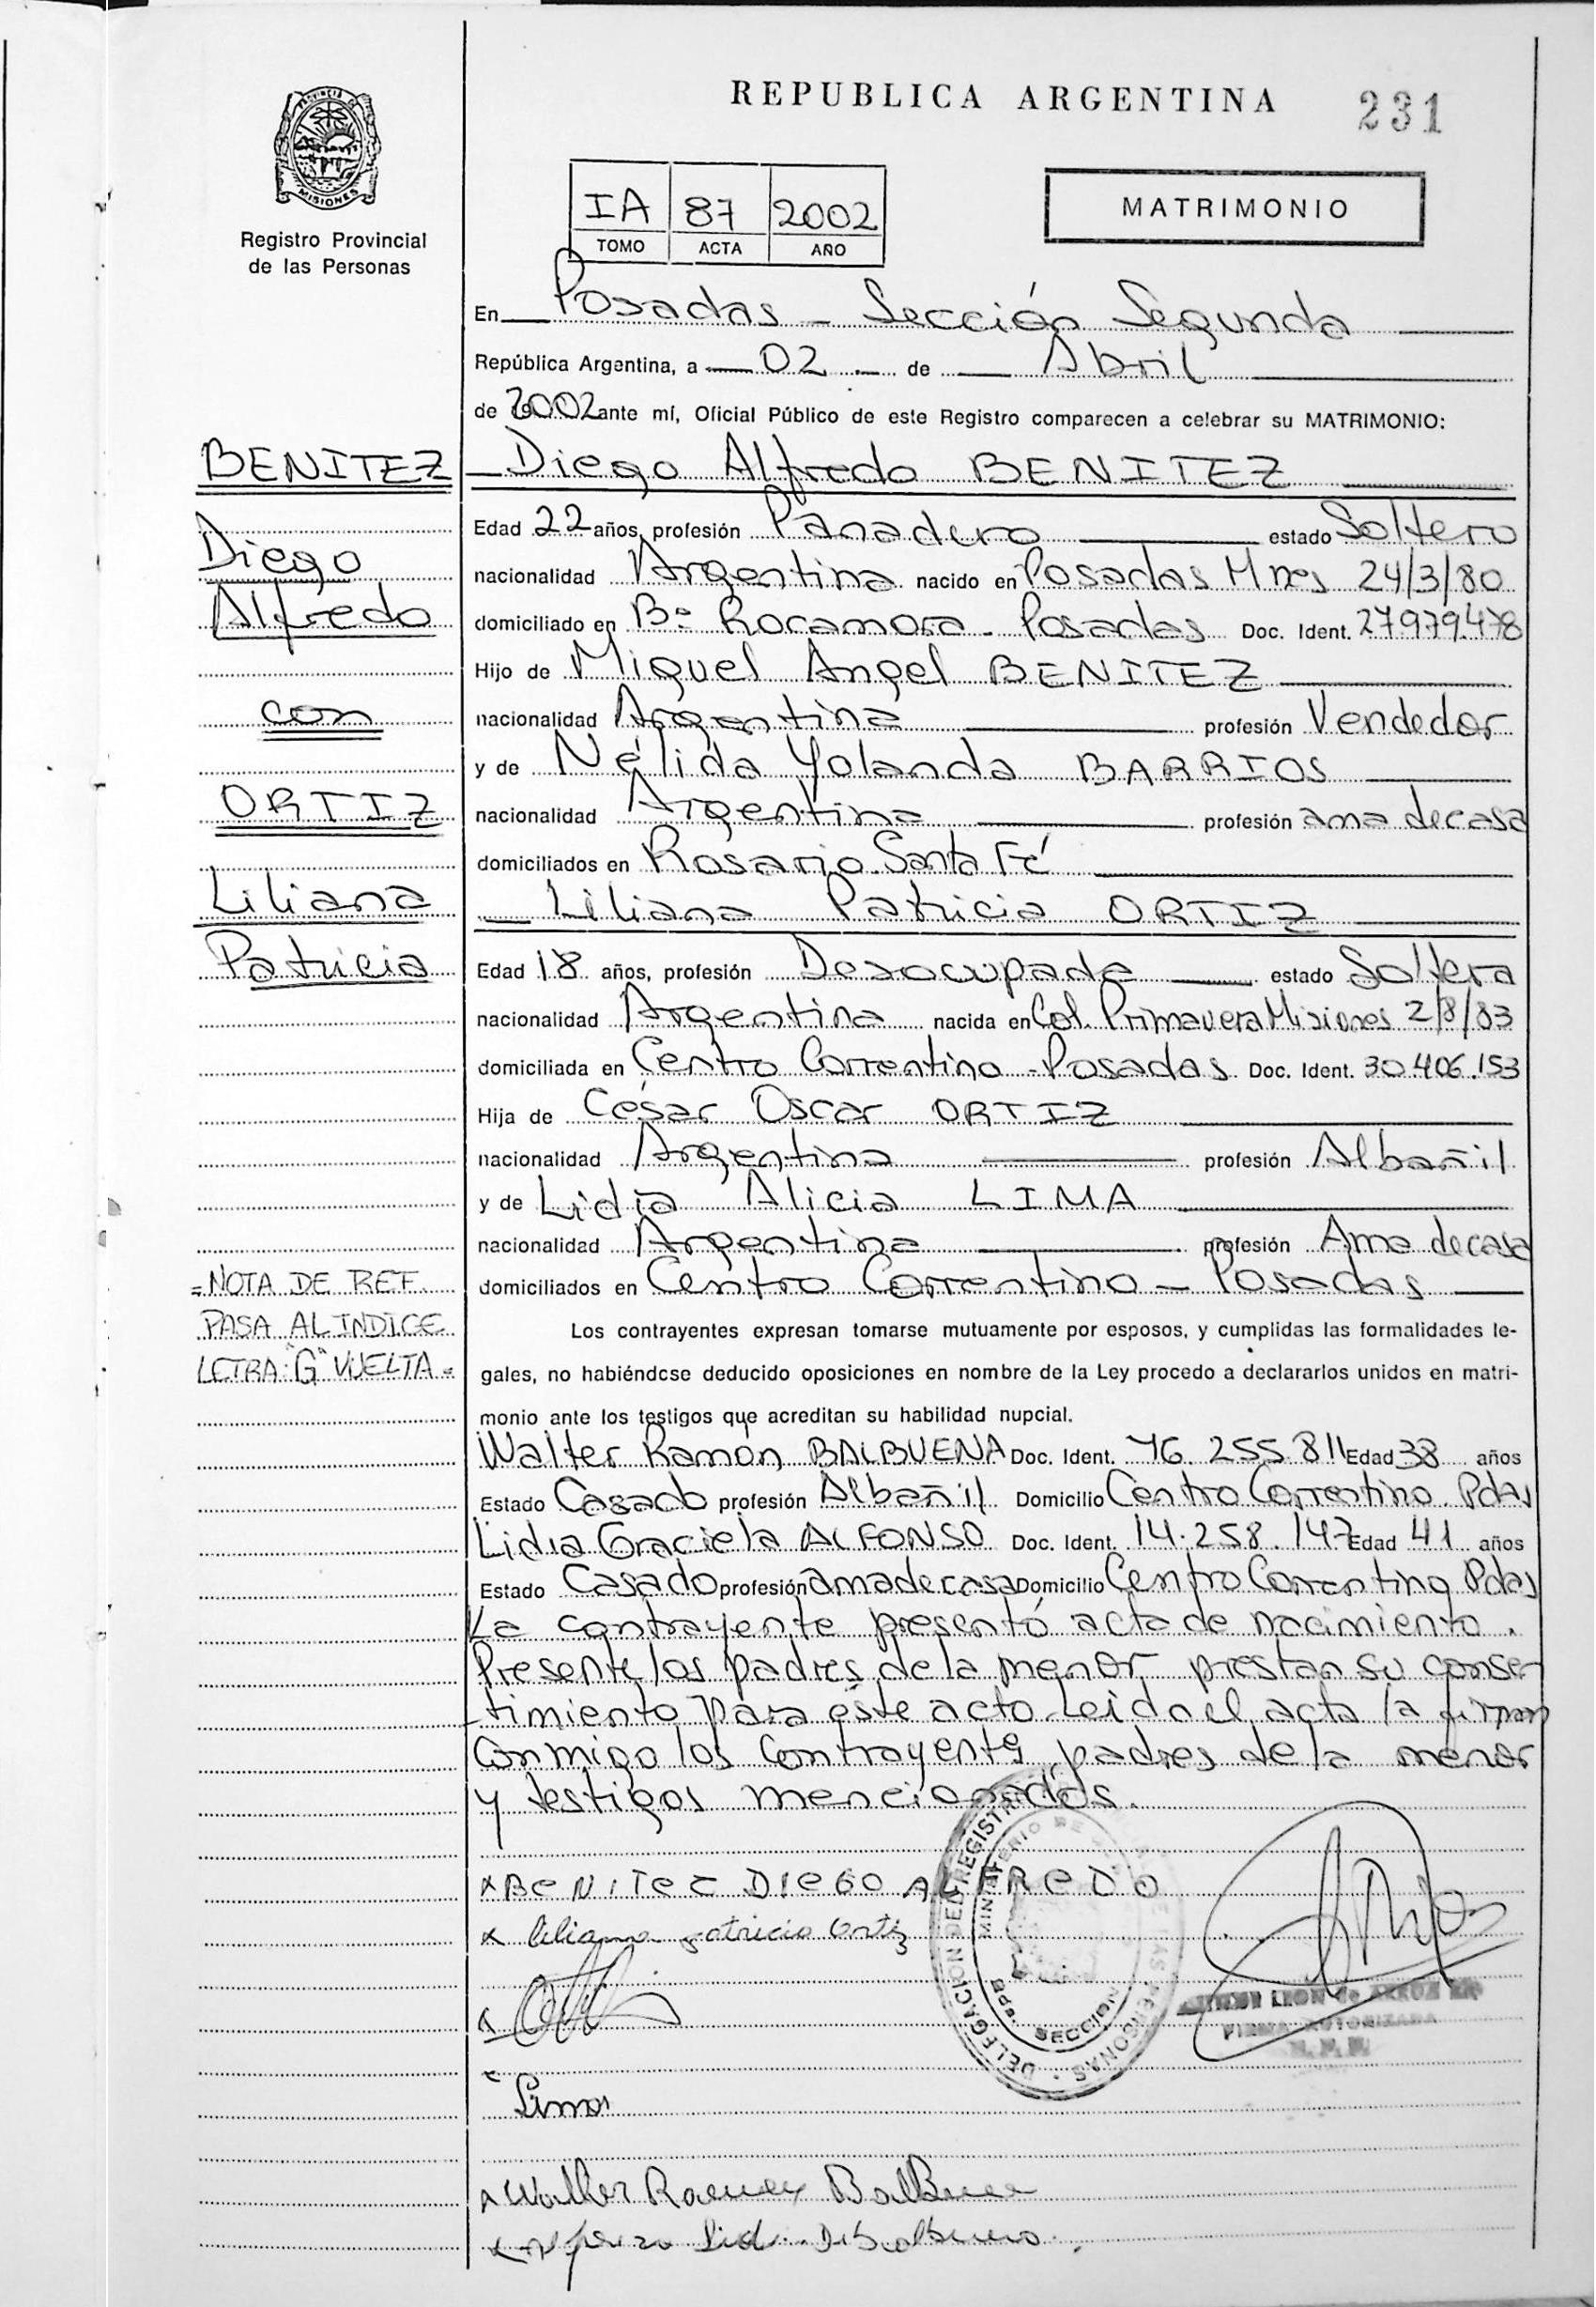 REPUBLICA ARGENTINA 231
PROVINCIA DE MISIONES
Registro Provincial
de las Personas
IA 87 2002
TOMO ACTA AÑO
MATRIMONIO
En Posadas - Sección Segunda
República Argentina, a 02 de Abril
de 2002 ante mí, Oficial Público de este Registro comparecen a celebrar su MATRIMONIO:
BENITEZ
Diego
Alfredo
con
ORTIZ
Liliana
Patricia
Diego Alfredo BENITEZ
Edad 22 años, profesión Panadero estado Soltero
nacionalidad Argentina nacido en Posadas Mnes 24/3/80
domiciliado en Bº Rocamora - Posadas Doc. Ident. 27.979.478
Hijo de Miguel Angel BENITEZ
nacionalidad Argentina profesión Vendedor
y de Nélida Yolanda BARRIOS
nacionalidad Argentina profesión ama de casa
domiciliados en Rosario. Santa Fé
Liliana Patricia ORTIZ
Edad 18 años, profesión Desocupada estado Soltera
nacionalidad Argentina nacida en Col. Primavera Misiones 2/8/83
domiciliada en Centro Correntino - Posadas Doc. Ident. 30.406.153
Hija de César Oscar ORTIZ
nacionalidad Argentina profesión Albañil
y de Lidia Alicia LIMA
nacionalidad Argentina profesión Ama de casa
domiciliados en Centro Correntino - Posadas
=NOTA DE REF.
PASA AL INDICE
LETRA: "G" VUELTA=
Los contrayentes expresan tomarse mutuamente por esposos, y cumplidas las formalidades le-
gales, no habiéndose deducido oposiciones en nombre de la Ley procedo a declararlos unidos en matri-
monio ante los testigos que acreditan su habilidad nupcial.
Walter Ramón BALBUENA Doc. Ident. 16.255.811 Edad 38 años
Estado Casado profesión Albañil Domicilio Centro Correntino. Pdas
Lidia Graciela ALFONSO Doc. Ident. 14.258.147 Edad 41 años
Estado Casado profesión ama de casa Domicilio Centro Correntino Pdas
La contrayente presentó acta de nacimiento.
Presente los padres de la menor prestan su conse-
-timiento para éste acto. Leido el acta la firman
conmigo los contrayentes padres de la menor
y testigos mencionados.
x BENITEZ DIEGO ALFREDO
x liliana patricia Ortiz
Lima
x Walter Ramon Balbuena
DELEGACION DEL REGISTRO DE LAS PERSONAS
MINISTERIO DE
SECCION
LEON de
FIRMA AUTORIZADA